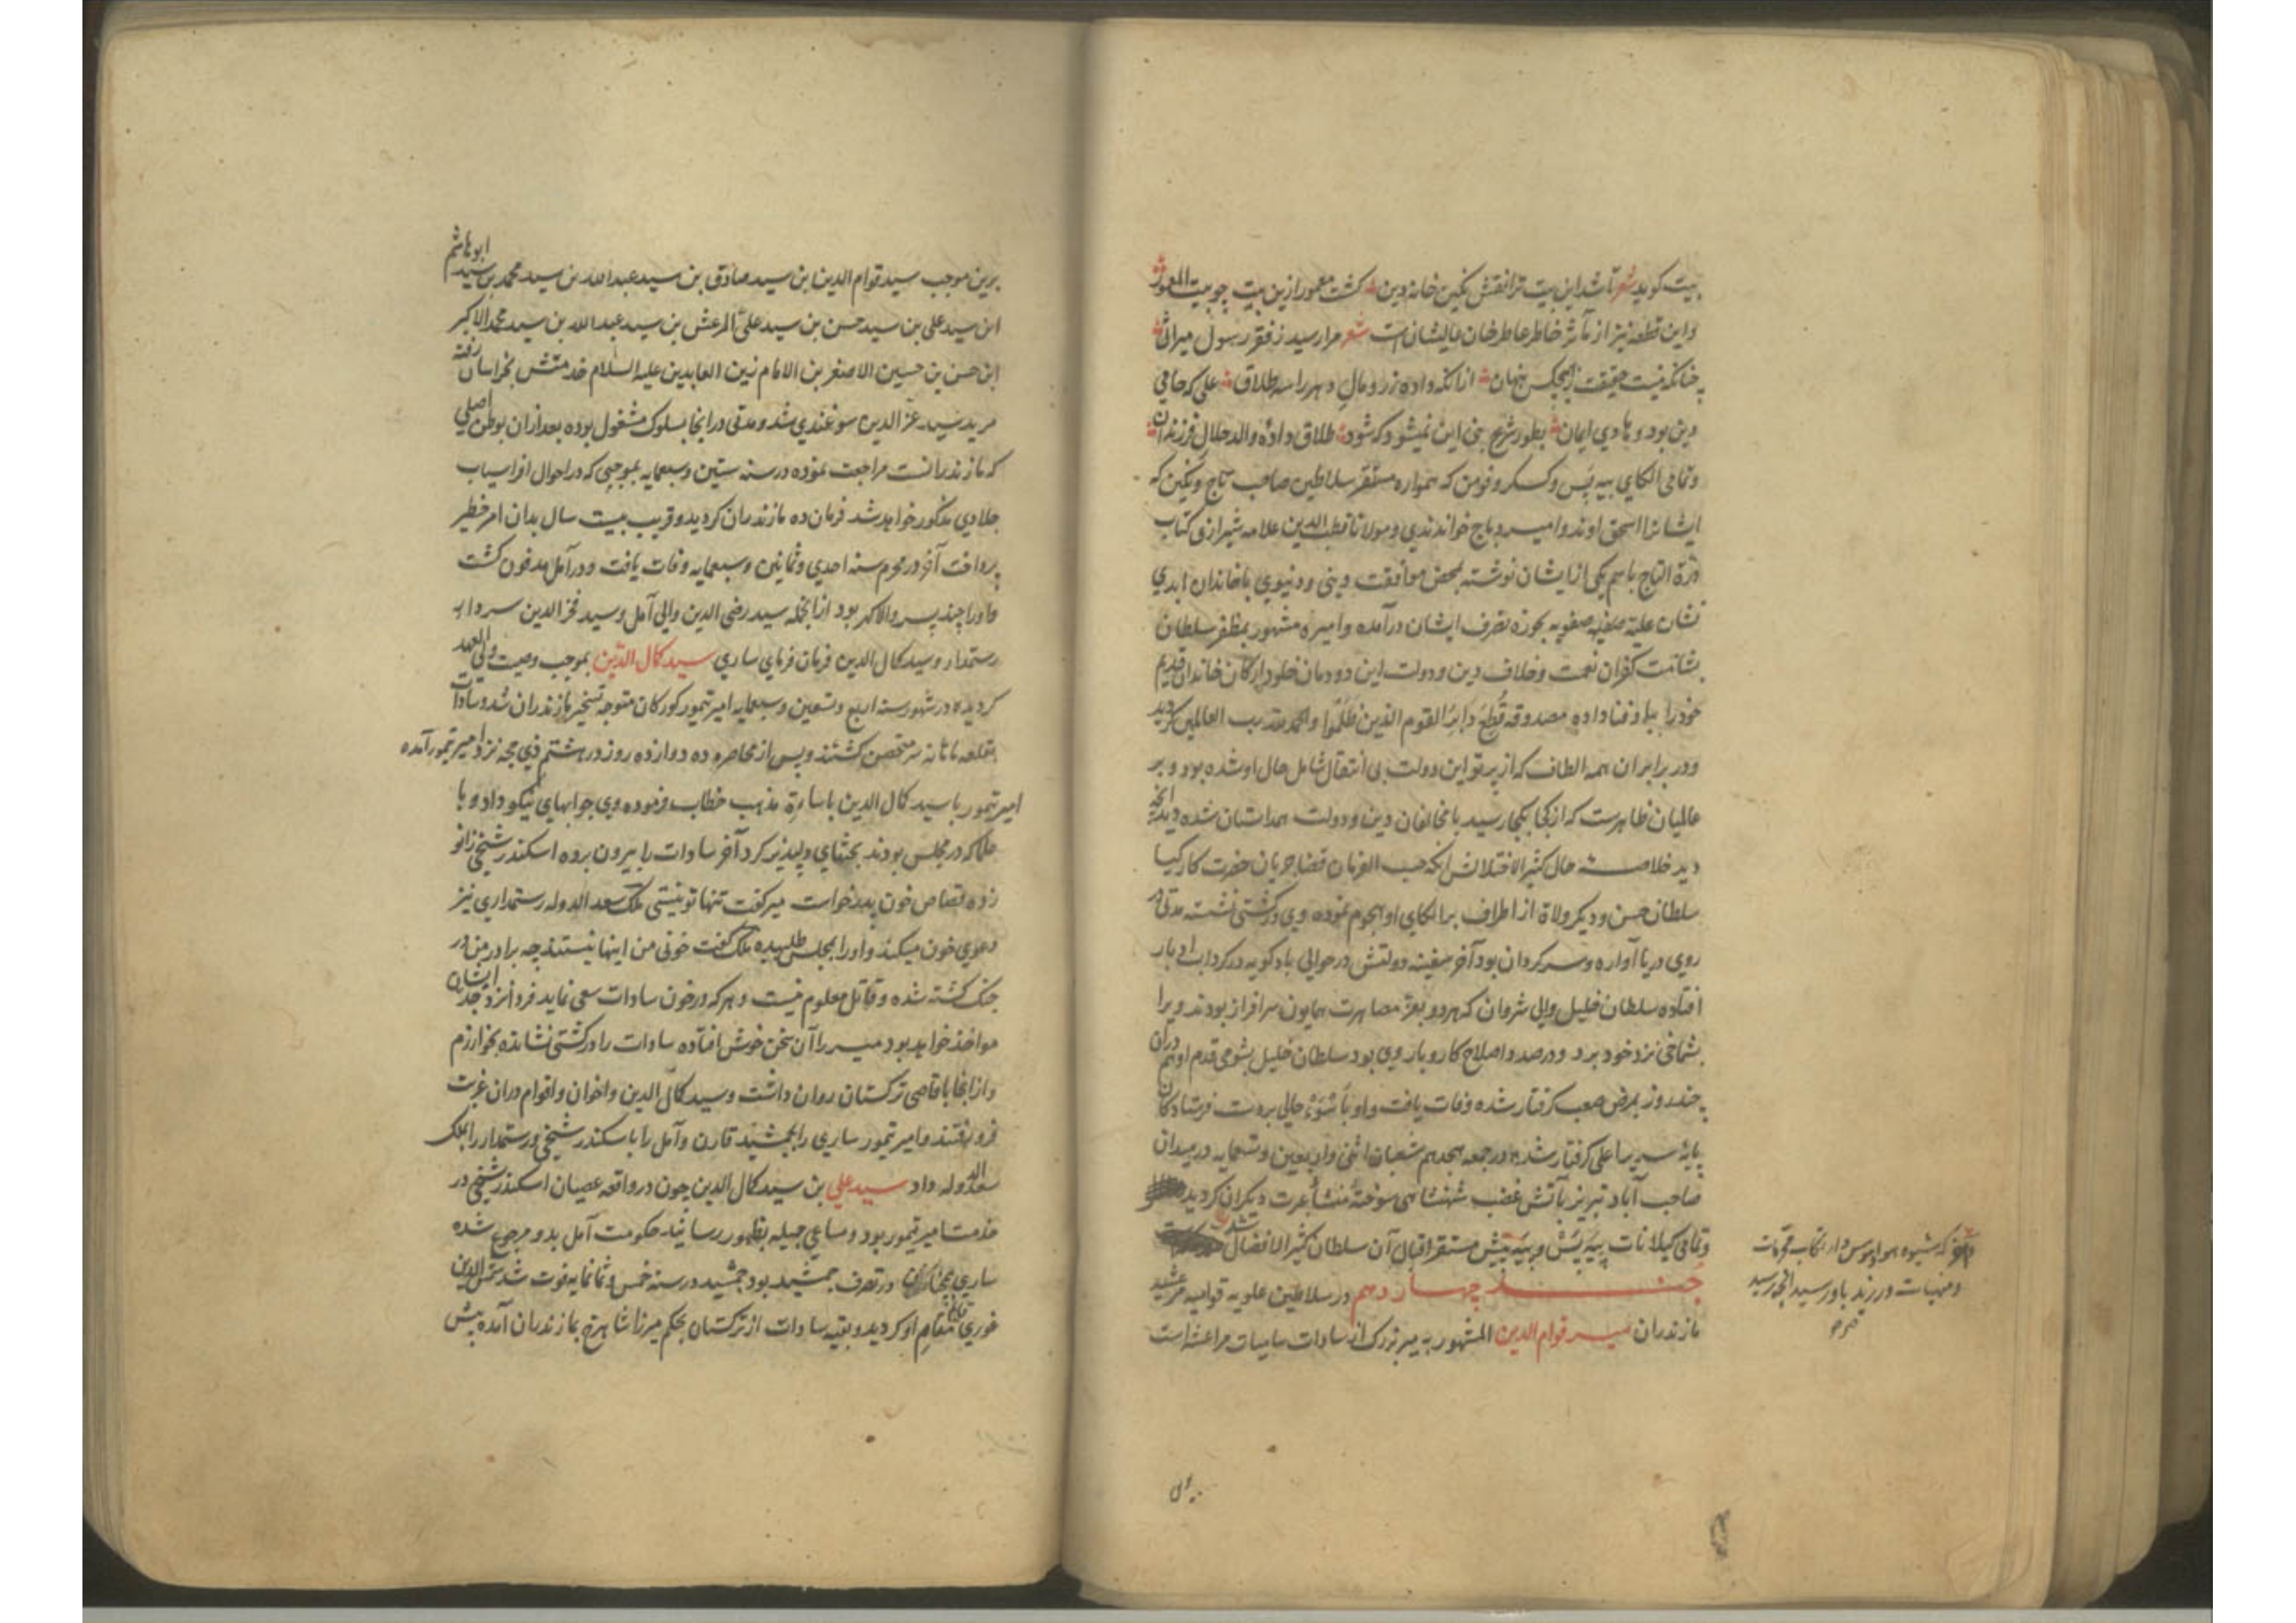 بیت کوید شعر تا شد این بیت ترا نقش نکین خانه دین کشت معمور ازین بیت چو بیت المعمور
واین قطعه نیز از مآثر خاطر عاطر خان عالیشان است شعر مرا رسید ز فقر رسول میراثی
چنانکه نیست حقیقت زهیچکس پنهان ازانکه داده زر و مال دهر را سه طلاق علی که حامی
دین بود و هادی ایمان بطور شرع نبی این نمیشود که شود طلاق داده والد حلال فرزندان
وتمامی الکای بیه پس وکسکر وفومن که همواره مستقر سلاطین صاحب تاج ونکین که
ایشانرا اسحق اوند وامیره دباج خواندندی ومولانا قطب الدین علامه شیرازی کتاب
درة التاج باسم یکی از ایشان نوشته بمحض موافقت دینی ودنیوی با خاندان ابدی
نشان علیه صفیه صفویه بحوزه تصرف ایشان درآمده وامیره مشهور بمظفر سلطان
بشامت کفران نعمت وخلاف دین ودولت این دودمان خلود ارکان خاندان قدیم
خود را بباد فنا داده مصدوقه قُطِعَ دابِرُ القوم الذین ظَلَمُوا والحمد لله رب العالمین کردید
ودر برابر ان همه الطاف که از پرتو این دولت بی انتقال شامل حال او شده بود و بر
عالمیان ظاهرست که از کجا بکجا رسید با مخالفان دین ودولت همداستان شده دید انچه
دید خلاصه حال کثیر الاختلالش انکه حسب الفرمان قضا جریان حضرت کارکیا
سلطان حسن ودیکر ولاة از اطراف بر الکای او هجوم نموده وی در کشتی نشسته مدتی در
روی دریا آواره وسرکردان بود آخر سفینه دولتش در حوالی بادکوبه در کرداب ادبار
افتاده سلطان خلیل والی شروان که هر دو بعز مصاهرت همایون سرافراز بودند ویرا
بشماخی نزد خود برد ودرصدد اصلاح کاروبار وی بود سلطان خلیل بشومی قدم او هم دران
چند روز بمرض صعب کرفتار شده وفات یافت واو باَسْوَءِ حالی بدست فرستادکان
پایه سریر اعلی کرفتار شده در جمعه هجدهم شعبان اثنی واربعین وتسعمایه در میدان
صاحب آباد تبریز بآتش غضب شهنشاهی سوخته منشأ عبرت دیکران کردید
وتمامی کیلانات بیه پس وبیه پیش مستقر اقبال آن سلطان کثیر الافضال شد
جند چهاردهم در سلاطین علویه قوامیه مرعشیه
مازندران میر قوام الدین المشهور به میر بزرک از سادات مراعشه است
که شیوه هوا وهوس دار ارتکاب محرمات
ومنهیات ورزید باو رسید انچه رسید
برین موجب سید قوام الدین ابن سید صادق بن سید عبدالله بن سید محمد بن سید ابو هاشم
ابن سید علی بن سید حسن بن سید علی المرعش بن سید عبدالله بن سید محمد الاکبر
ابن حسن بن حسین الاصغر بن الامام زین العابدین علیه السلام خدمتش بخراسان رفته
مرید سید عز الدین سوغندی شد ومدتی در انجا بسلوک مشغول بوده بعد ازان بوطن اصلی
که مازندرانست مراجعت نموده در سنه ستین وسبعمایه بموجبی که در احوال افراسیاب
جلاوی مذکور خواهد شد فرمان ده مازندران کردید وقریب بیست سال بدان امر خطیر
پرداخت آخر در محرم سنه احدی وثمانین وسبعمایه وفات یافت ودر آمل مدفون کشت
واورا چند پسر والاکهر بود ازانجمله سید رضی الدین والی آمل وسید فخر الدین سردار
رستمدار وسید کمال الدین فرمان فرمای ساری سید کمال الدّین بموجب وصیت ولی العهد
کردیده در شهور سنه اربع وتسعین وسبعمایه امیر تیمور کورکان متوجه تسخیر مازندران شد وسادات
بقلعه ماهانه سر متحصن کشتند وپس از محاصره ده دوازده روز در هشتم ذی حجه نزد امیر تیمور آمده
امیر تیمور با سید کمال الدین باساءة مذهب خطاب فرموده وی جوابهای نیکو داد وبا
علما که در مجلس بودند بحثهای دلپذیر کرد آخر سادات را بیرون برده اسکندر شیخی زانو
زده قصاص خون پدر خواست میر کفت تنها تو نیستی ملک سعد الدوله رستمداری نیز
دعوی خون میکند واورا بمجلس طلبیده ملک کفت خونی من اینها نیستند چه برادر من در
جنک کشته شده وقاتل معلوم نیست وهر که در خون سادات سعی نماید فردا نزد جد ایشان
مواخذ خواهد بود میر را آن سخن خوش افتاده سادات را در کشتی نشانده بخوارزم
واز انجا باقاصی ترکستان روان داشت وسید کمال الدین واخوان واقوام دران غربت
فرو رفتند وامیر تیمور ساری را بجمشید قارن وآمل را باسکندر شیخی ورستمدار را بملک
سعد الدوله داد سید علی بن سید کمال الدین چون در واقعه عصیان اسکندر شیخی در
خدمت امیر تیمور بود ومساعی جمیله بظهور رسانید حکومت آمل بدو مرجوع شده
ساری همچنان در تصرف جمشید بود جمشید در سنه خمس وثمانمایه فوت شد شمس الدین
غوری قایم مقام او کردید وبقیه سادات از ترکستان بحکم میرزا شاهرخ بمازندران آمده پیش